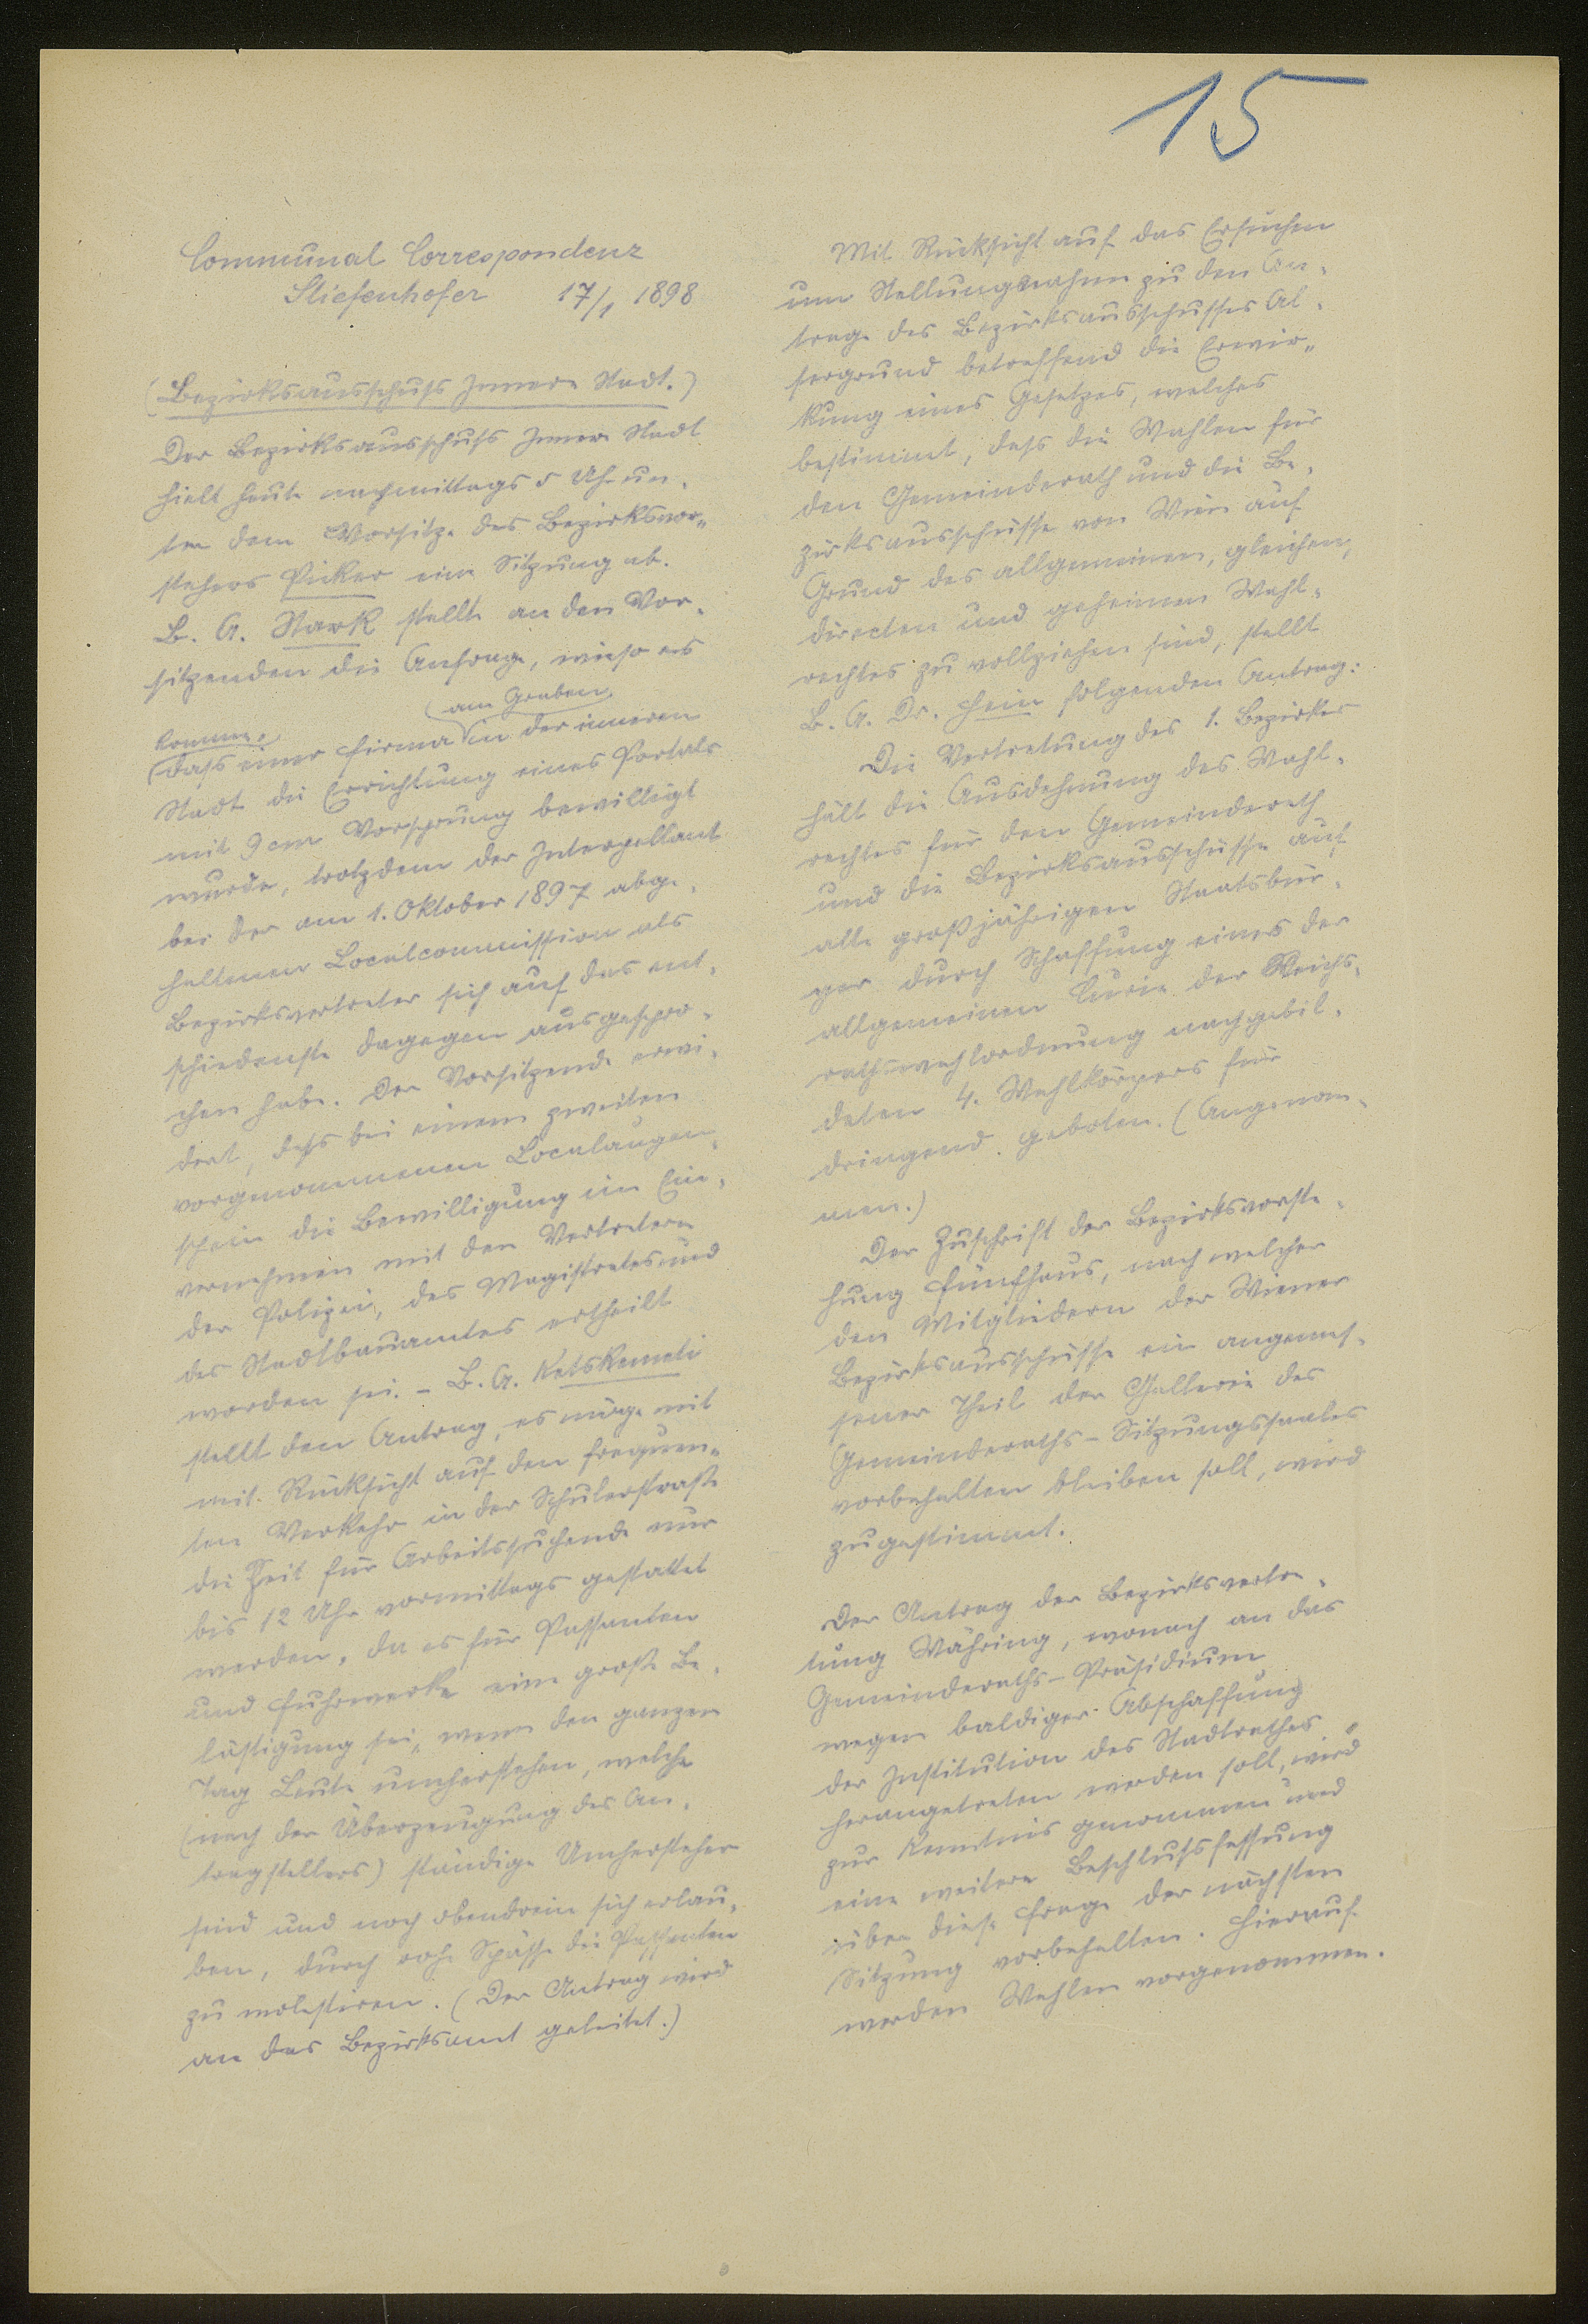 15
Communal Correspondenz
Stiefenhofer 17/1 1898
(Bezirksausschuss Innere Stadt.)
Der Bezirksausschuss Innere Stadt
hielt heute nachmittags 5 Uhr un-
ter dem Vorsitze des Bezirksvor-
stehers Picker eine Sitzung ab.
B. A. Stark stellte an den Vor-
sitzenden die Anfrage, wieso es
komme,
am Graben
dass einer Firma in der inneren
Stadt die Errichtung eines Portals
mit 9 cm Vorsprung bewilligt
wurde, trotzdem der Interpellant
bei der am 1. Oktober 1897 abge-
haltenen Localcommission als
Bezirksvertreter sich auf das ent-
schiedenste dagegen ausgespro-
chen habe. Der Vorsitzende erwi-
dert, dass bei einem zweiten
vorgenommenen Localaugen-
schein die Bewilligung im Ein-
vernehmen mit den Vertretern
der Polizei, des Magistrates und
des Stadtbauamtes ertheilt
worden sei. - B. A. Ketskemeti
stellt den Antrag, es möge mit
mit Rücksicht auf den frequen-
ten Verkehr in der Schulerstraße
die Zeit für Arbeitssuchende nur
bis 12 Uhr vormittags gestattet
werden, da es für Passanten
und Fuhrwerke eine große Be-
lästigung sei, wenn den ganzen
Tag Leute umherstehen, welche
(nach der Überzeugung des An-
tragstellers) ständige Umhersteher
sind und noch obendrein sich erlau-
ben, durch rohe Spässe die Passanten
zu molestiren. (Der Antrag wird
an das Bezirksamt geleitet.)
Mit Rücksicht auf das Ersuchen
um Stellungnahme zu dem An-
trage des Bezirksausschusses Al-
sergrund betreffend die Erwir-
kung eines Gesetzes, welches
bestimmt, dass die Wahlen für
den Gemeinderath und die Be-
zirksausschüsse von Wien auf
Grund des allgemeinen, gleichen,
directen und geheimen Wahl-
rechtes zu vollziehen sind, stellt
B. A. Dr. Hein folgenden Antrag:
Die Vertretung des 1. Bezirkes
hält die Ausdehnung des Wahl-
rechtes für den Gemeinderath
und die Bezirksausschüsse auf
alle großjährigen Staatsbür-
ger durch Schaffung eines der
allgemeinen Curie der Reichs-
rathswahlordnung nachgebil-
deten 4. Wahlkörpers für
dringend geboten. (Angenom-
men.)
Der Zuschrift der Bezirksvorste-
hung Fünfhaus, nach welcher
den Mitgliedern der Wiener
Bezirksausschüsse ein angemes-
sener Theil der Gallerie des
Gemeinderaths-Sitzungssaales
vorbehalten bleiben soll, wird
zugestimmt.
Der Antrag der Bezirksvertre-
tung Währing, wonach an das
Gemeinderaths-Präsidium
wegen baldiger Abschaffung
der Institution des Stadtrathes
herangetreten werden soll, wird
zur Kenntnis genommen und
eine weitere Beschlussfassung
über diese Frage der nächsten
Sitzung vorbehalten. Hierauf
werden Wahlen vorgenommen.